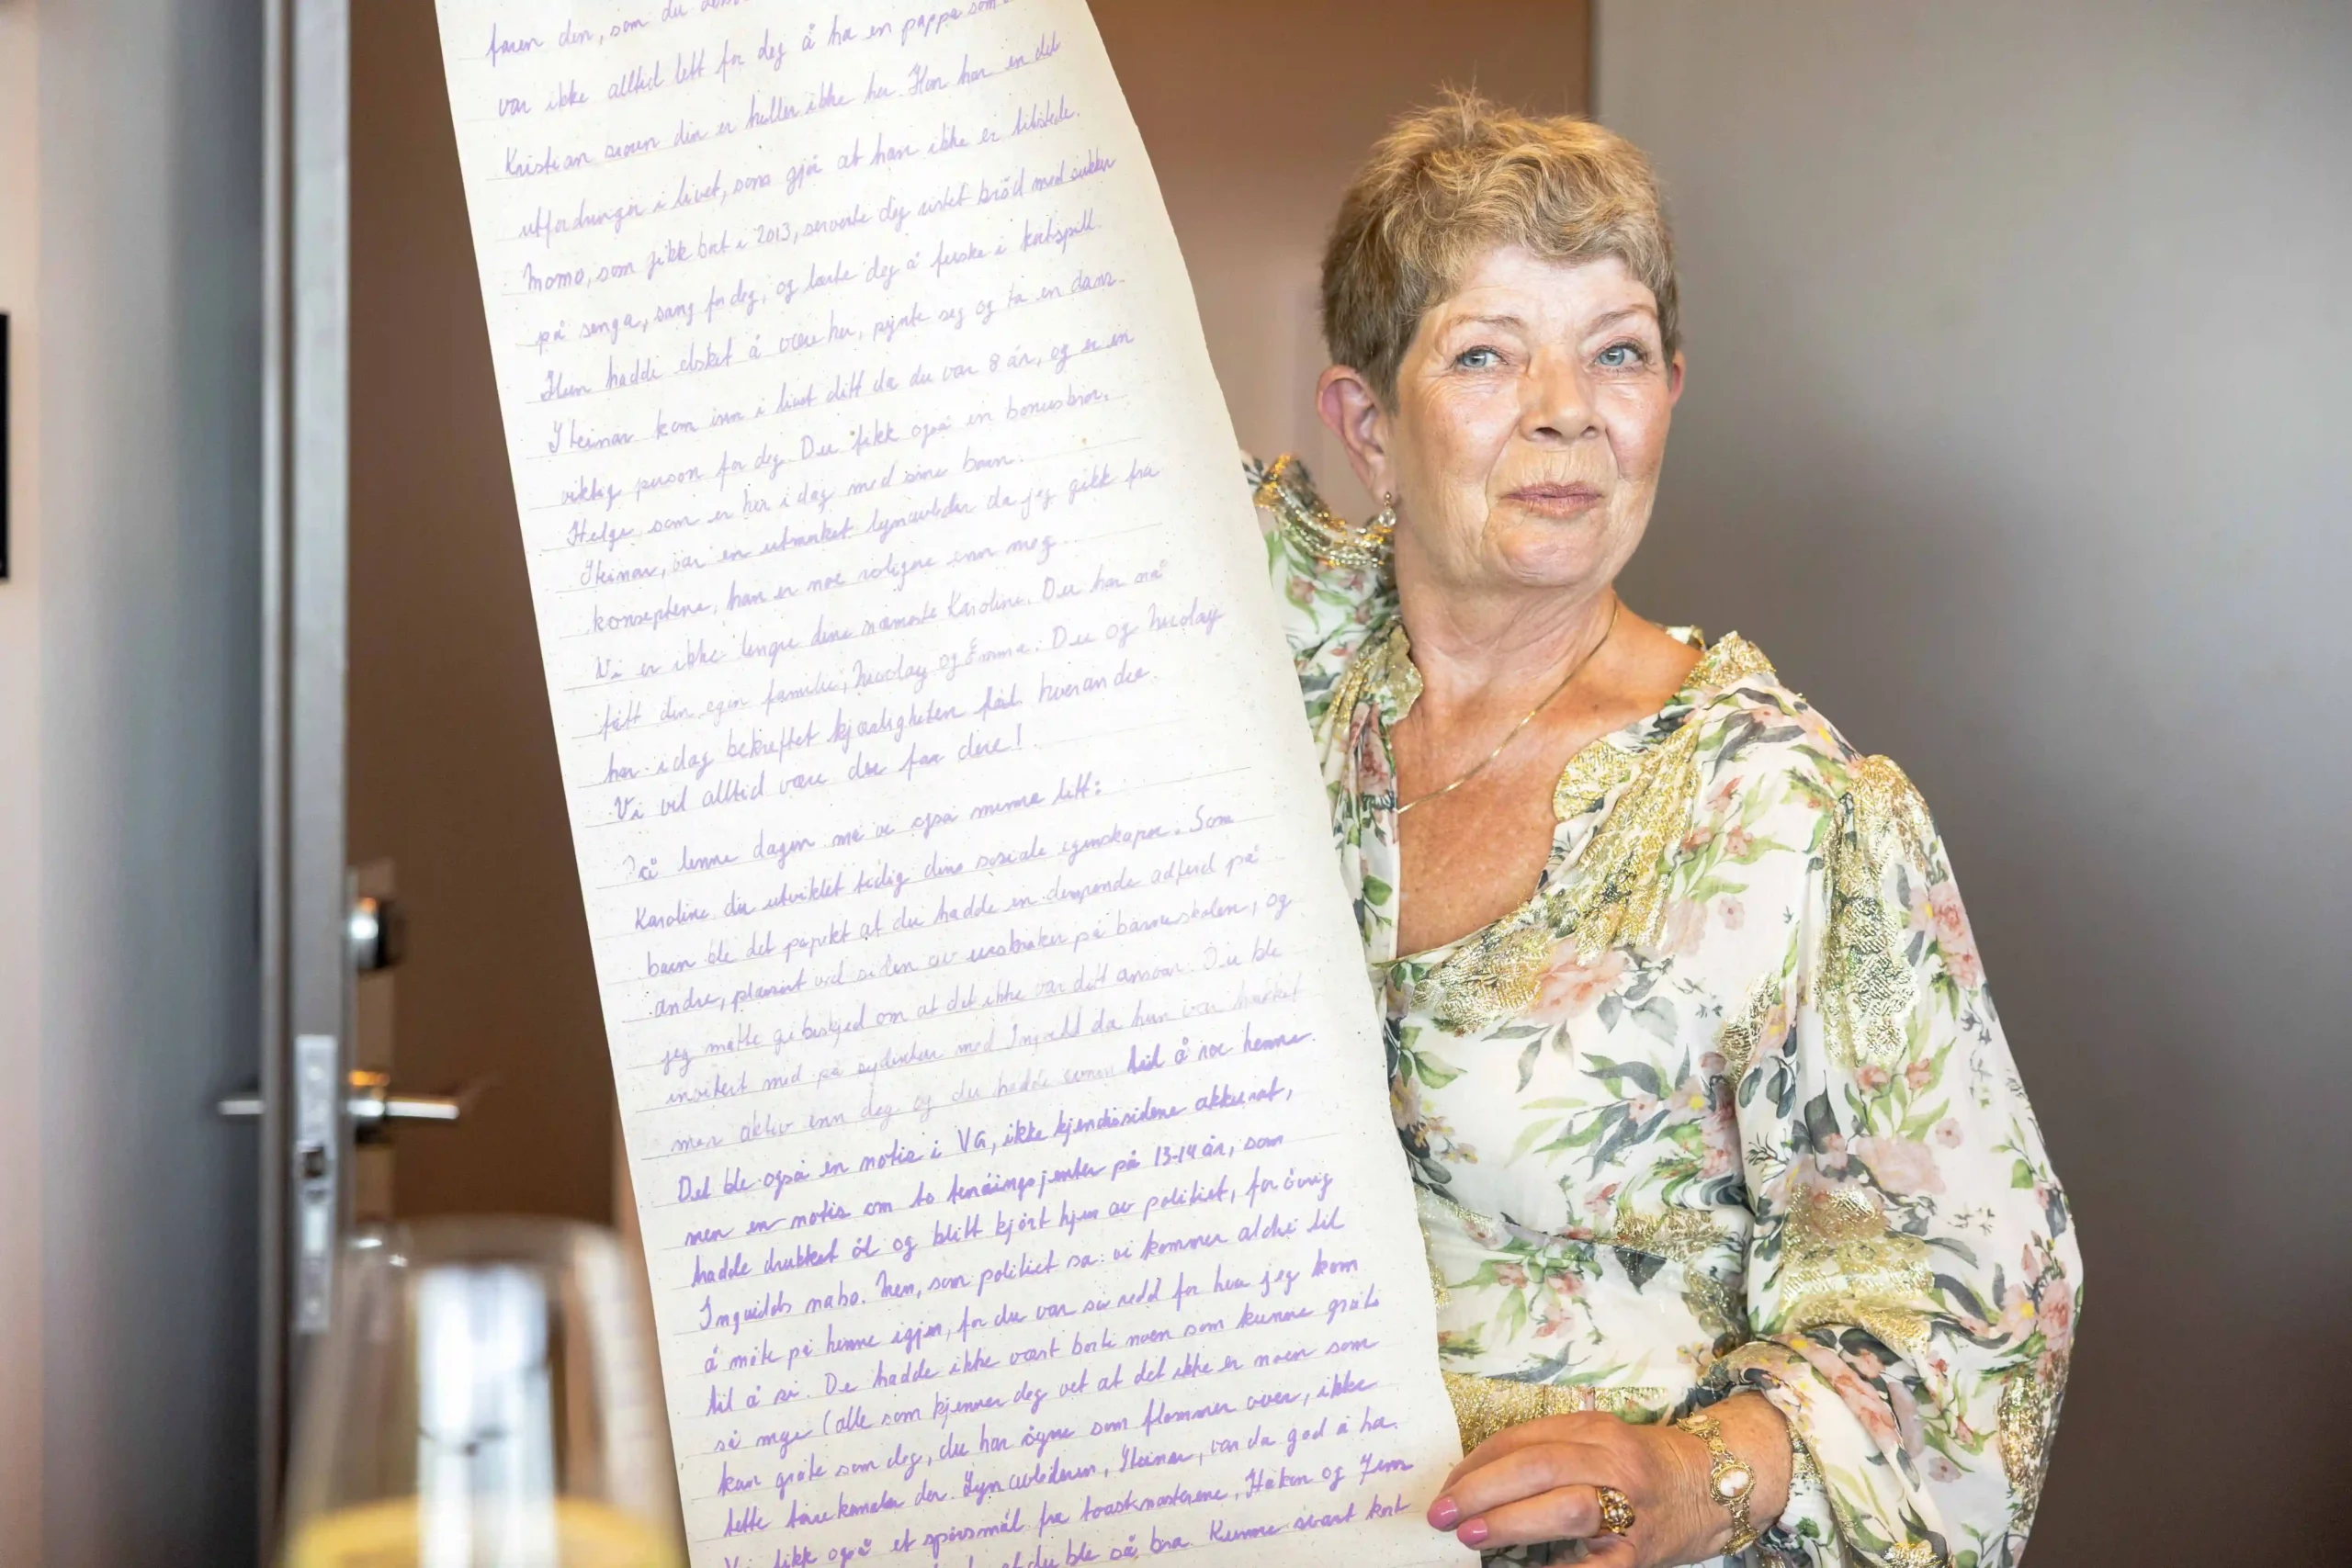 faren din, som du
var ikke alltid lett for deg å ha en pappa som
Kristian broren din er heller ikke her. Han har en del
utfordringer i livet, som gjør at han ikke er tilstede.
Momo, som gikk bort i 2013, serverte deg ristet brød med sukker
på senga, sang for deg, og lærte deg å juske i kortspill.
Hun hadde elsket å være her, pynte seg og ta en dans.
Steinar kom inn i livet ditt da du var 8 år, og er en
viktig person for deg. Du fikk også en bonusbror,
Helge som er her i dag med sine barn.
Steinar, var en utmerket lynavleder da jeg gikk fra
konseptene, han er noe roligere enn meg..
Vi er ikke lengre dine nærmeste Karoline. Du har nå
fått din egen familie, Nicolay og Emma. Du og Nicolay
har i dag bekreftet kjærligheten til hverandre.
Vi vil alltid være der for dere!
På denne dagen må vi også mimre litt:
Karoline du utviklet tidlig dine sosiale egenskaper. Som
barn ble det påpekt at du hadde en dempende adferd på
andre, plassert ved siden av urokråker på barneskolen, og
jeg måtte gi beskjed om at det ikke var ditt ansvar. Du ble
invitert med på sydenturer med Ingvild da hun var
mer aktiv enn deg og du hadde sånn tid å roe henne.
Det ble også en notis i VG, ikke kjendissidene akkurat,
men en notis om to tenåringsjenter på 13-14 år, som
hadde drukket öl og blitt kjört hjem av politiet, for övrig
Ingvilds nabo. Men, som politiet sa: vi kommer aldri til
å möte på henne igjen, for du var så redd for hva jeg kom
til å si. De hadde ikke vært borte noen som kunne gråte
så mye (alle som kjenner deg vet at det ikke er noen som
kan gråte som deg, du har øyne som flommer over, ikke
tette tårekanaler der. Lynavlederen, Steinar, var da god å ha.
Vi fikk også et spörsmål fra toastmasterene, Håkon og Jim
at du ble så bra. Kunne svart kort